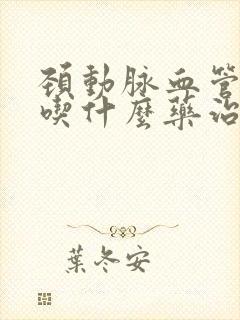 頚動脉血管
喫什麼藥治
葉冬安